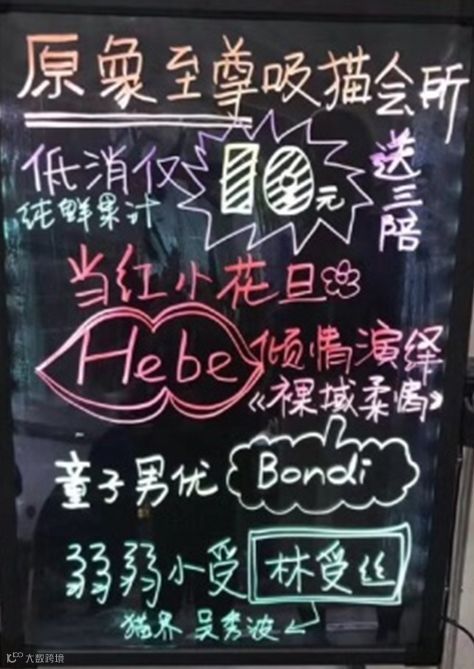 原象至尊吸猫会所
低消仅10元
纯鲜果汁
送三陪
当红小花旦
Hebe倾情演绎
《裸域柔情》
童子男优 Bondi
弱弱小受 林受丝
猫界 吴秀波
大数跨境